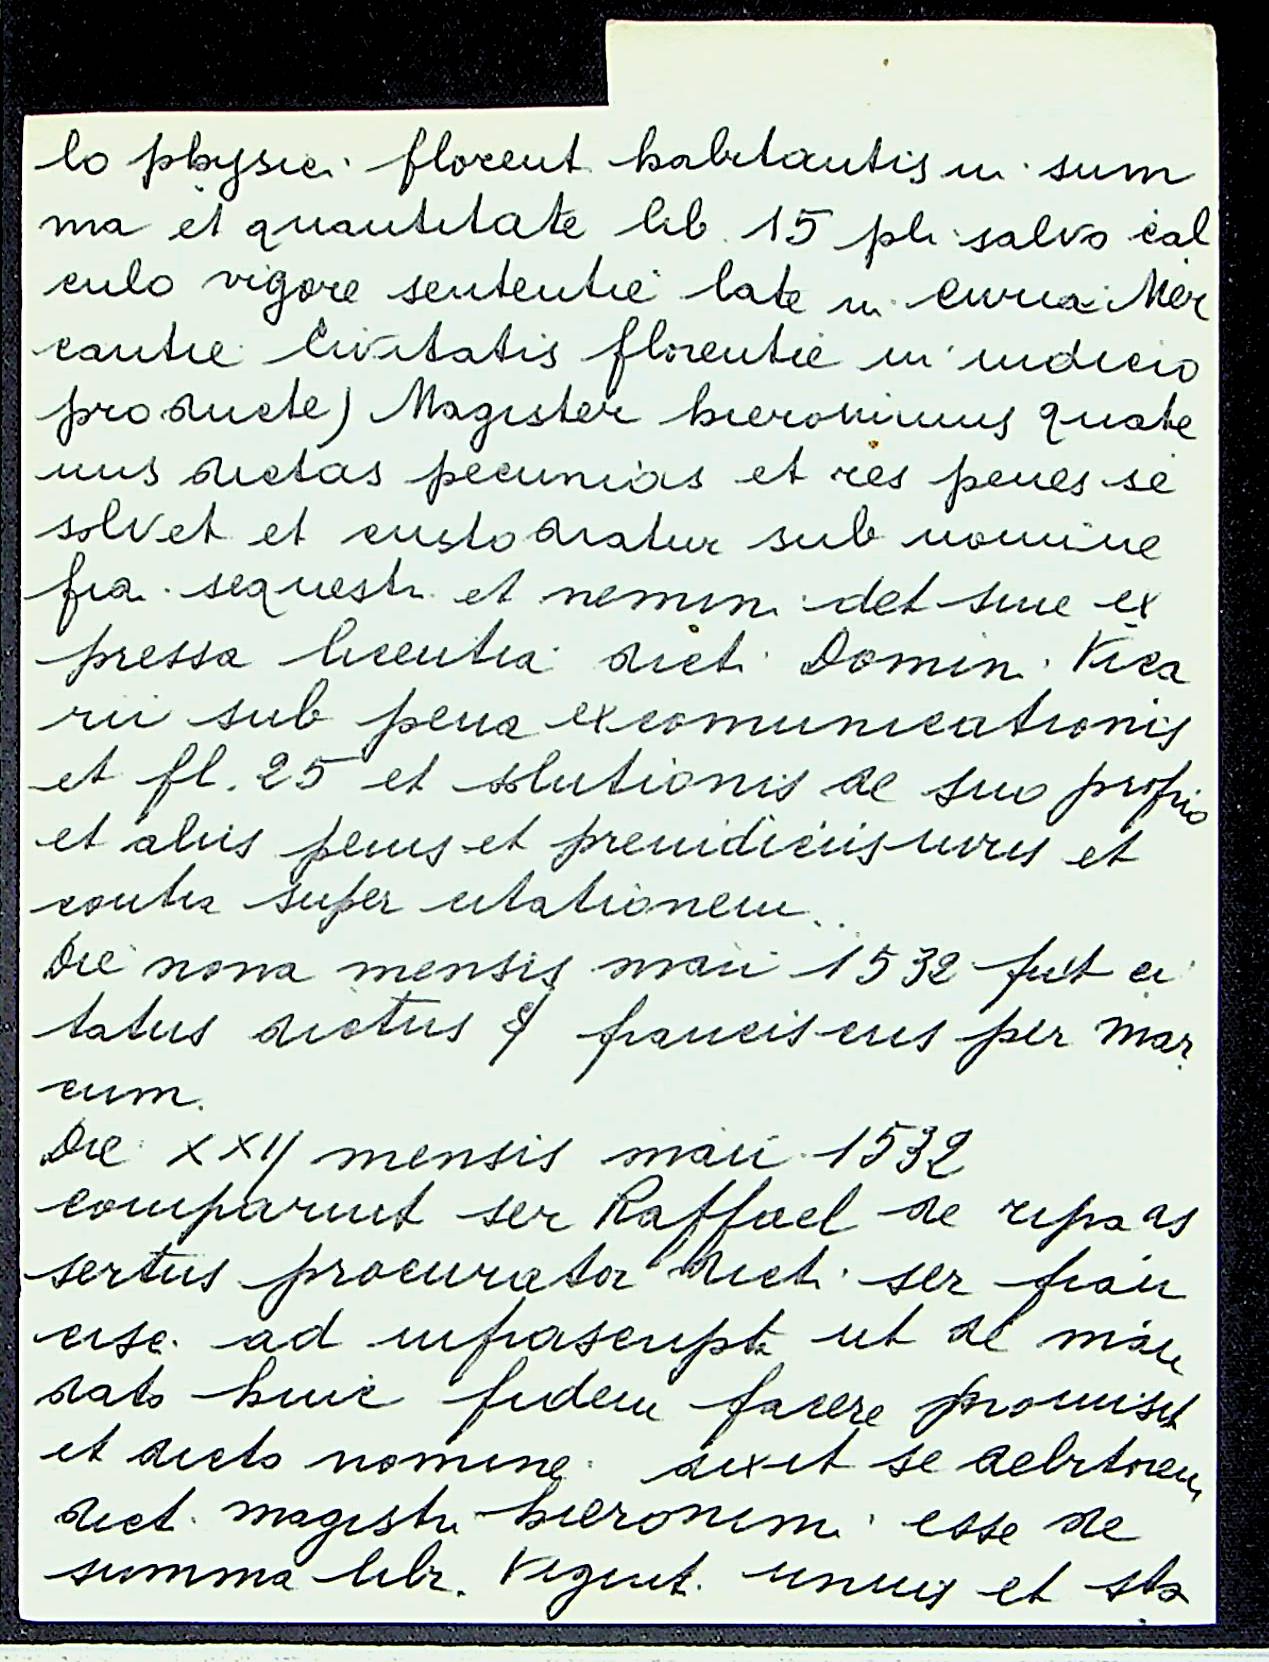 lo physici florent habitantis in sum
ma et quantitate lib. 15 pli salvo cal
culo vigore sententie late in Curia Mer
cantie Civitatis florentie in iudicio
producte) Magister hieronimus quate
nus dictas pecunias et res penes se
solvet et custodiatur sub nomine
fia. sequestri et nemini det sine ex
pressa licentia dicti Domini Vica
rii sub pena excomunicationis
et fl. 25 et solutionis de suo proprio
et aliis penis et preiudiciis iuris et
contra super citationem..
Die nona mensis maii 1532 fuit ci
tatus dictus franciscus per Mar
cum.
Die XXIJ mensis maii 1532
comparuit ser Raffael de ripa as
sertus procurator dicti ser fran
cisc. ad infrascripta ut de man
dato huic fidem facere promisit
et dicto nomine dixit se debitorem
dict. magistri hieronimi esse de
summa libr. Vigint. unius et sta